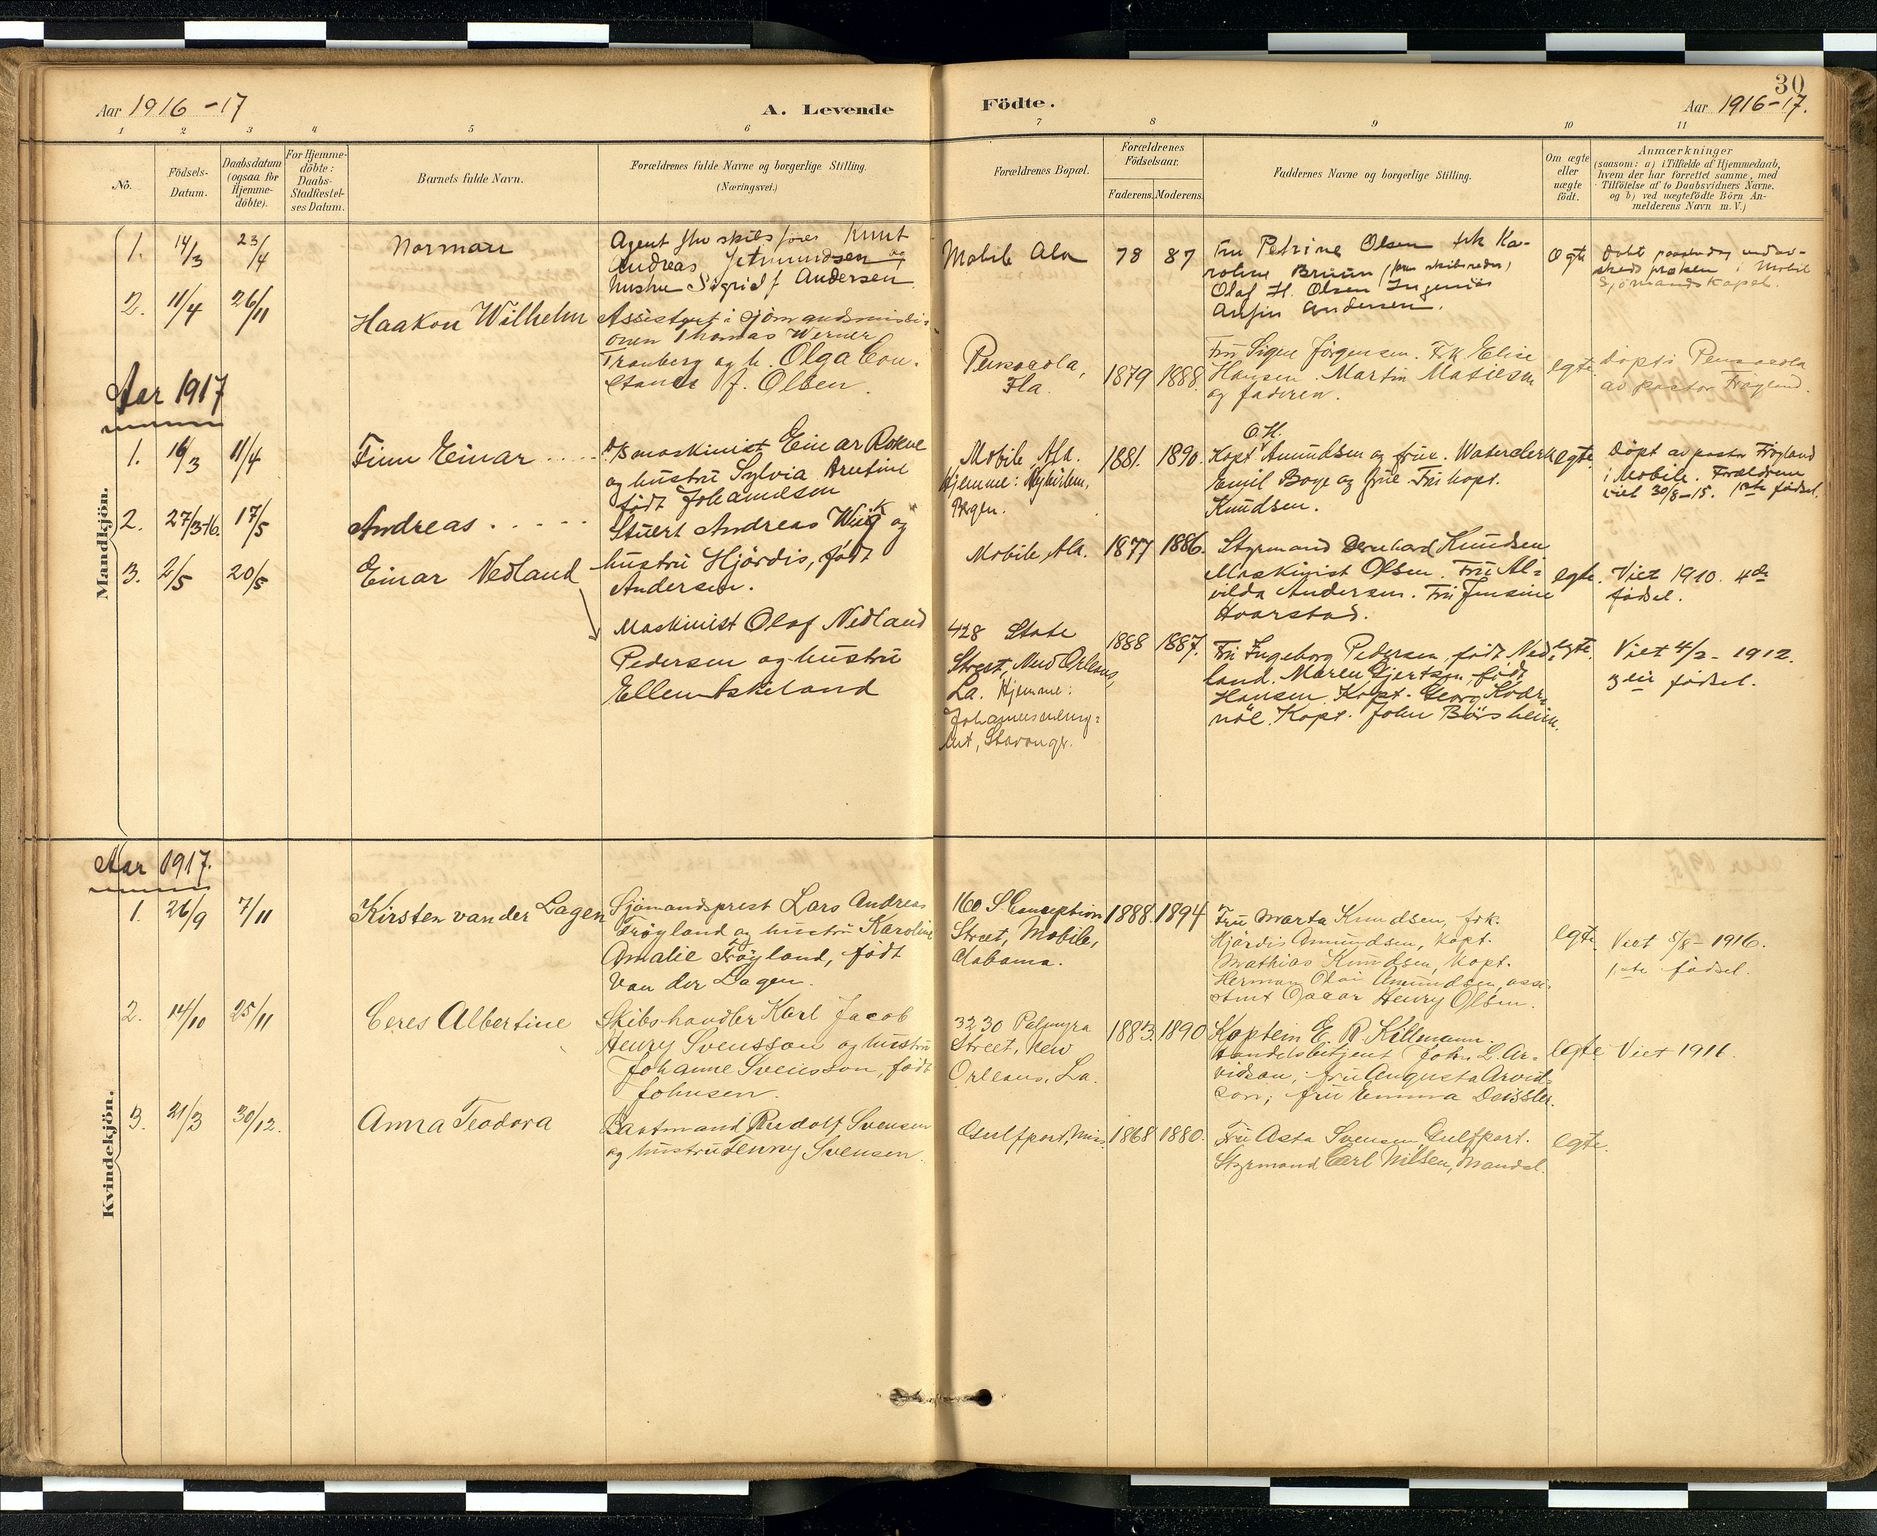 30
Aar 1916-17
A. Levende Födte.
Aar 1916-17.
1 2 3 4 5 6 7 8 9 10 11
No.
Födsels-
Datum.
Daabsdatum
(ogsaa for
Hjemme-
döbte).
For Hjemme-
döbte:
Daabs-
Stadfæstel-
ses Datum.
Barnets fulde Navn.
Forældrenes fulde Navne og borgerlige Stilling.
(Næringsvei.)
Forældrenes Bopæl.
Forældrenes
Födselsaar.
Faderens. Moderens.
Faddernes Navne og borgerlige Stilling.
Om ægte
eller
uægte
födt.
Anmærkninger
(saasom: a) i Tilfælde af Hjemmedaab,
hvem der har forrettet samme, med
Tilföielse af to Daabsvidners Navne,
og b) ved uægtefödte Börn An-
melderens Navn m. V.)
Mandkjön.
1. 14/3 23/4
Norman
Agent skibsfører Knut
Andreas og
hustru Sigrid f. Andersen.
Mobile Ala 78 87
Fru Petrine Olsen frk Ka-
roline Bruun
Olaf H. Olsen Ingeniør
Andersen.
Ægte
i Mobil
Sjömandskapel.
2. 11/4 26/11
Haakon Wilhelm
Assistent i sjömandsmissi-
onen Thomas Werner
Tranberg og h. Olga Con-
stance f. Olsen.
Pensacola,
Fla. 1879 1888.
Fru Signe Jørgensen. Frk Elise
Hansen. Martin
og faderen.
egte
Döpt i Pensacola
av pastor Frøyland.
Aar 1917
1. 16/3 11/4
Finn Einar .....
maskinist Einar
og hustru Sylvia
født Johannesen
Mobile, Ala.
Hjemme:
Bergen.
1881. 1890.
O.H.
Kapt Amundsen og frue.
Emil Boye og frue. Fru kapt.
Knudsen.
egte.
Döpt av pastor Frøyland
i Mobile. Forældrene
viet 30/8-15. 1ste födsel.
2. 27/3-16. 17/5
Andreas. . . . .
Stuert Andreas og
hustru Hjördis, født
Andersen.
Mobile, Ala. 1877 1886.
Styrmand Bernhard Knudsen
Maskinist Olsen. Fru Al-
vilda Andersen. Fru Jensine
Hvarstad.
egte.
Viet 1910. 4de
födsel.
3. 2/5 20/5
Einar Nedland
Maskinist Olaf Nedland
Pedersen og hustru
Ellen Askeland
428 State
Street, New Orleans,
La. Hjemme:
Stavanger.
1888 1887.
Fru Ingeborg Pedersen, født Ned-
land. Maren Gjertsen, født
Hansen. Kapt. Georg
Kapt. John Börsheim.
egte.
Viet 4/2-1912.
3die födsel.
Kvindekjön.
Aar 1917.
1. 26/9 7/11
Kirsten van der Lagen
Sjömandsprest Lars Andreas
Frøyland og hustru Karoline
Amalie Frøyland, født
Van der Lagen.
160 S. Conception
Street, Mobile,
Alabama.
1888. 1894
Fru Marta Knudsen, frk.
Hjördis Amundsen, Kapt.
Mathias Knudsen, Kapt.
Herman Olai Amundsen, assi-
stent Oscar Henry Olsen.
egte
Viet 5/8-1916.
1ste födsel.
2. 14/10 25/11
Ceres Albertine
Skibshandler Karl Jacob
Henry Svensson og hustru
Johanne Svensson, født
Johnsen.
3230 Palmyra
Street, New
Orleans, La.
1883. 1890
Kaptein E. R. Killmann.
Handelsbetjent John L. Ar-
vidson; fru Augusta Arvid-
son; fru Emma Deissler.
egte
Viet 1911.
3. 21/3 30/12.
Anna Teodora
Baatmand Rudolf Svensen
og hustru Jenny Svensen.
Gulfport, Miss. 1868 1880.
Fru Asta Svensen Gulfport.
Styrmand Carl Nilsen, Mandal.
egte.